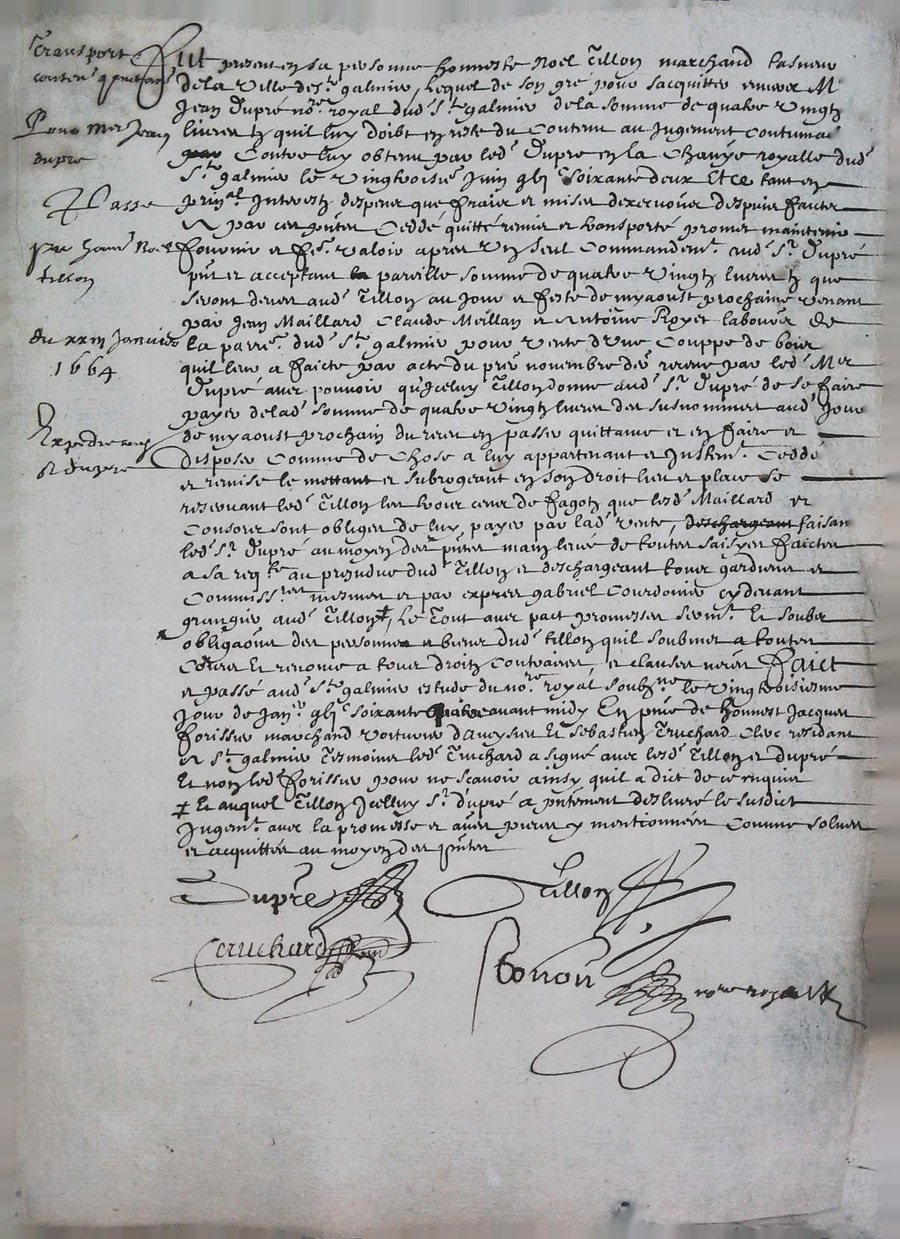 Transport
conten^t quictan^e
Pour M^e Jean
dupre
Passé
par hon^e Noel
tillon
du xxiii Janvier
1664
Expedié aud^t
s^r dupre
Fut present en sa personne honneste Noel Tillon marchand
de la Ville de s^t galmier, Lequel de son gré pour sacquitter envers M^e
Jean Dupré no^re royal dud^t s^t galmier de la somme de quatre Vingtz
livres tz quil luy doibt en reste du Contenu au Jugement
par Contre luy obtenu par led^t Dupré en la royalle dud^t
s^t galmier le Vingtroisie^e Juin soixante deux Et ce tant en
prin^al Interestz despens que fraix et mises despuis faictes
par ces p^ntes Ceddé quitté remis et transporté promet maintenir
fournir et f^e valoir apres Un seul Commandem^t aud^t s^r Dupré
p^nt et acceptant la pareille somme de quatre Vingtz livres tz que
seront deues aud^t Tillon au Jour et feste de myaoust prochaine venant
par Jean Maillard Claude Meillan et Antoine Royet laboureurs de
la parr^e dud^t s^t galmier pour vente d'Une Couppe de bois
quil leur a faicte par acte du novembre der^r receue par led^t M^e
Dupré avec pouvoir qu'Jceluy Tillon donne aud^t s^r Dupré de se faire
payer de lad^e somme de quatre Vingtz livres des susnommés aud^t Jour
de myaoust prochain du receu en passer quittance et en faire et
disposer Comme de Chose a luy appartenant et Ceddé
et remise le mettant et subrogeant en son droit lieu et place se
reservant led^t Tillon de fagotz que lesd^s Maillard et
Consors sont obligés de luy payer par lad^e vente, deschargeant faisan^t
led^t s^r Dupré au moyen des p^ntes main levée de toutes saisyes faictes
a sa req^te au prejudice dud^t Tillon et deschargeant tous gardiens et
Commiss^res mesmes et par expres gabriel Courdonier cydevant
grangier aud^t Tillon ‡, Le Tout avec pact promesses serm^t Et soubz
obliga^ons des personnes et biens dud^t tillon quil soubmet a toutes
Cours Et renonce a tous droitz Contraires, et clauses Faict
et passé aud^t s^t galmier estude du no^re royal soubz^né le Vingtroisiesme
Jour de Jan^er soixante quatre avant midy En p^nce de honnest Jacques
forissier marchand voiturier d'aveysieu Et Sebastien Truchard Clerc residant
a s^t galmier Tesmoins led^t Truchard a signé avec lesd^s Tillon et dupré
Et non led^t forissier pour ne scavoir ainsy quil a dict de ce enquis
‡ Et auquel Tillon Jcelluy s^r dupré a p^ntement deslivré le susdict
Jugem^t avec la promesse et autres pieces y mentionnées Comme solues
et acquittées au moyen des p^ntes
Dupré
Tillon
Truchard
no^re royal